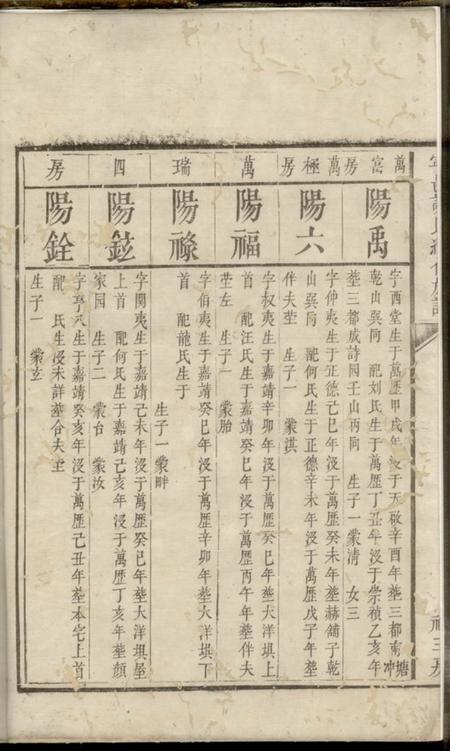 萬富房
陽禹
字西堂生于萬歷甲戌年歿于天啟辛酉年塟三都南塘冲
乾山巽向 配刘氏生于萬歷丁丑年歿于崇禎乙亥年
塟三都成詩园壬山丙向 生子一 蒙清 女三
萬極房
陽六
字仲夷生于正德己巳年歿于萬歷癸未年塟赫舖子乾
山巽向 配何氏生于正德辛未年歿于萬歷戊子年塟
伴夫塋 生子一 蒙淇
萬
陽福
字叔夷生于嘉靖辛卯年歿于萬歷癸巳年塟大洋垻上
首 配汪氏生于嘉靖癸巳年歿于萬歷丙午年塟伴夫
塋左 生子一 蒙胎
瑞
陽祿
字伯夷生于嘉靖癸巳年歿于萬歷辛卯年塟大洋垻下
首 配龍氏生于
生子一 蒙畔
四
陽鉉
字閞夷生于嘉靖己未年歿于萬歷癸巳年塟大洋垻屋
上首 配何氏生于嘉靖己亥年歿于萬歷丁亥年塟顔
家园 生子二 蒙台 蒙汝
房
陽銓
字亨夫生于嘉靖癸亥年歿于萬歷己丑年塟本宅上首
配 氏生歿未詳塟合夫塋
生子一 蒙玄